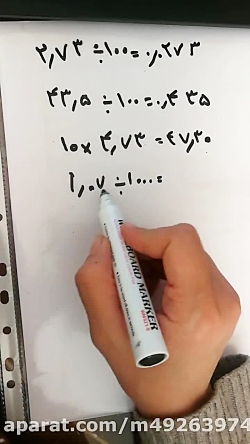 ۲٫۷۳ ÷ ۱۰۰ = ۰٫۰۲۷۳
۴۳٫۵ ÷ ۱۰۰ = ۰٫۴۳۵
۱۰ × ۴٫۷۳ = ۴۷٫۳۰
۹٫۰۷ ÷ ۱۰۰۰ =
BOARD MARKER
aparat.com/m49263974